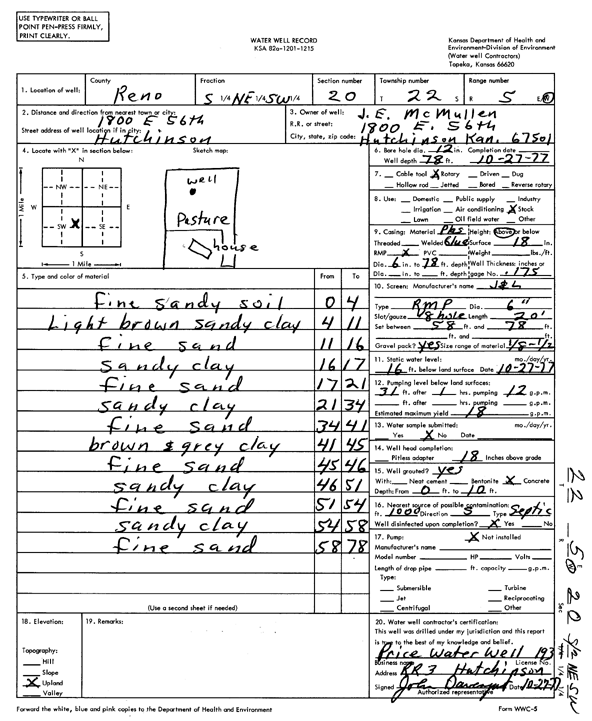 USE TYPEWRITER OR BALL
POINT PEN-PRESS FIRMLY,
PRINT CLEARLY.
WATER WELL RECORD
KSA 82a-1201-1215
Kansas Department of Health and
Environment-Division of Environment
(Water well Contractors)
Topeka, Kansas 66620
1. Location of well: County Reno Fraction S 1/4 NE 1/4 SW 1/4 Section number 20 Township number T 22 S Range number R 5 E/W
2. Distance and direction from nearest town or city: 1800 E 56th
Street address of well location if in city: Hutchinson
3. Owner of well: J. E. McMullen
R.R. or street: 1800 E. 56th
City, state, zip code: Hutchinson Kan. 67501
4. Locate with "X" in section below: Sketch map:
N
NW NE
W E
SW X SE
S
1 Mile
1 Mile
well
Pasture
house
6. Bore hole dia. 12 in. Completion date
Well depth 78 ft. 10-27-77
7. Cable tool X Rotary Driven Dug
Hollow rod Jetted Bored Reverse rotary
8. Use: Domestic Public supply Industry
Irrigation Air conditioning X Stock
Lawn Oil field water Other
9. Casing: Material Plas Height: Above or below
Threaded Welded Glue Surface 18 in.
RMP X PVC Weight lbs./ft.
Dia. 6 in. to 78 ft. depth Wall Thickness: inches or
Dia. in. to ft. depth gage No. .175
5. Type and color of material From To
fine sandy soil 0 4
Light brown sandy clay 4 11
fine sand 11 16
sandy clay 16 17
fine sand 17 21
sandy clay 21 34
fine sand 34 41
brown & grey clay 41 45
fine sand 45 46
sandy clay 46 51
fine sand 51 54
sandy clay 54 58
fine sand 58 78
(Use a second sheet if needed)
10. Screen: Manufacturer's name J & L
Type RMP Dia. 6"
Slot/gauze 1/8 hole Length 20'
Set between 58 ft. and 78 ft.
ft. and ft.
Gravel pack? yes Size range of material 1/8-1/2
11. Static water level: mo./day/yr.
16 ft. below land surface Date 10-27-77
12. Pumping level below land surfaces:
31 ft. after 1 hrs. pumping 12 g.p.m.
ft. after hrs. pumping g.p.m.
Estimated maximum yield 18 g.p.m.
13. Water sample submitted: mo./day/yr.
Yes X No Date
14. Well head completion:
Pitless adapter 18 Inches above grade
15. Well grouted? yes
With: Neat cement Bentonite X Concrete
Depth: From 0 ft. to 10 ft.
16. Nearest source of possible contamination:
ft. 1000 Direction S Type Septic
Well disinfected upon completion? X Yes No
17. Pump: X Not installed
Manufacturer's name
Model number HP Volts
Length of drop pipe ft. capacity g.p.m.
Type:
Submersible Turbine
Jet Reciprocating
Centrifugal Other
18. Elevation:
Topography:
Hill
Slope
X Upland
Valley
19. Remarks:
20. Water well contractor's certification:
This well was drilled under my jurisdiction and this report
is true to the best of my knowledge and belief.
Price Water Well 193
Business name License No.
Address RR3 Hutchinson
Signed John Date 10-27-77
Authorized representative
22 5 W 20 NE SW
T R Sec 1/4 1/4 1/4
Forward the white, blue and pink copies to the Department of Health and Environment Form WWC-5